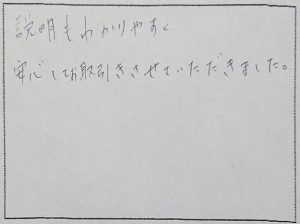 説明もわかりやすく
安心してお取引きさせていただきました。